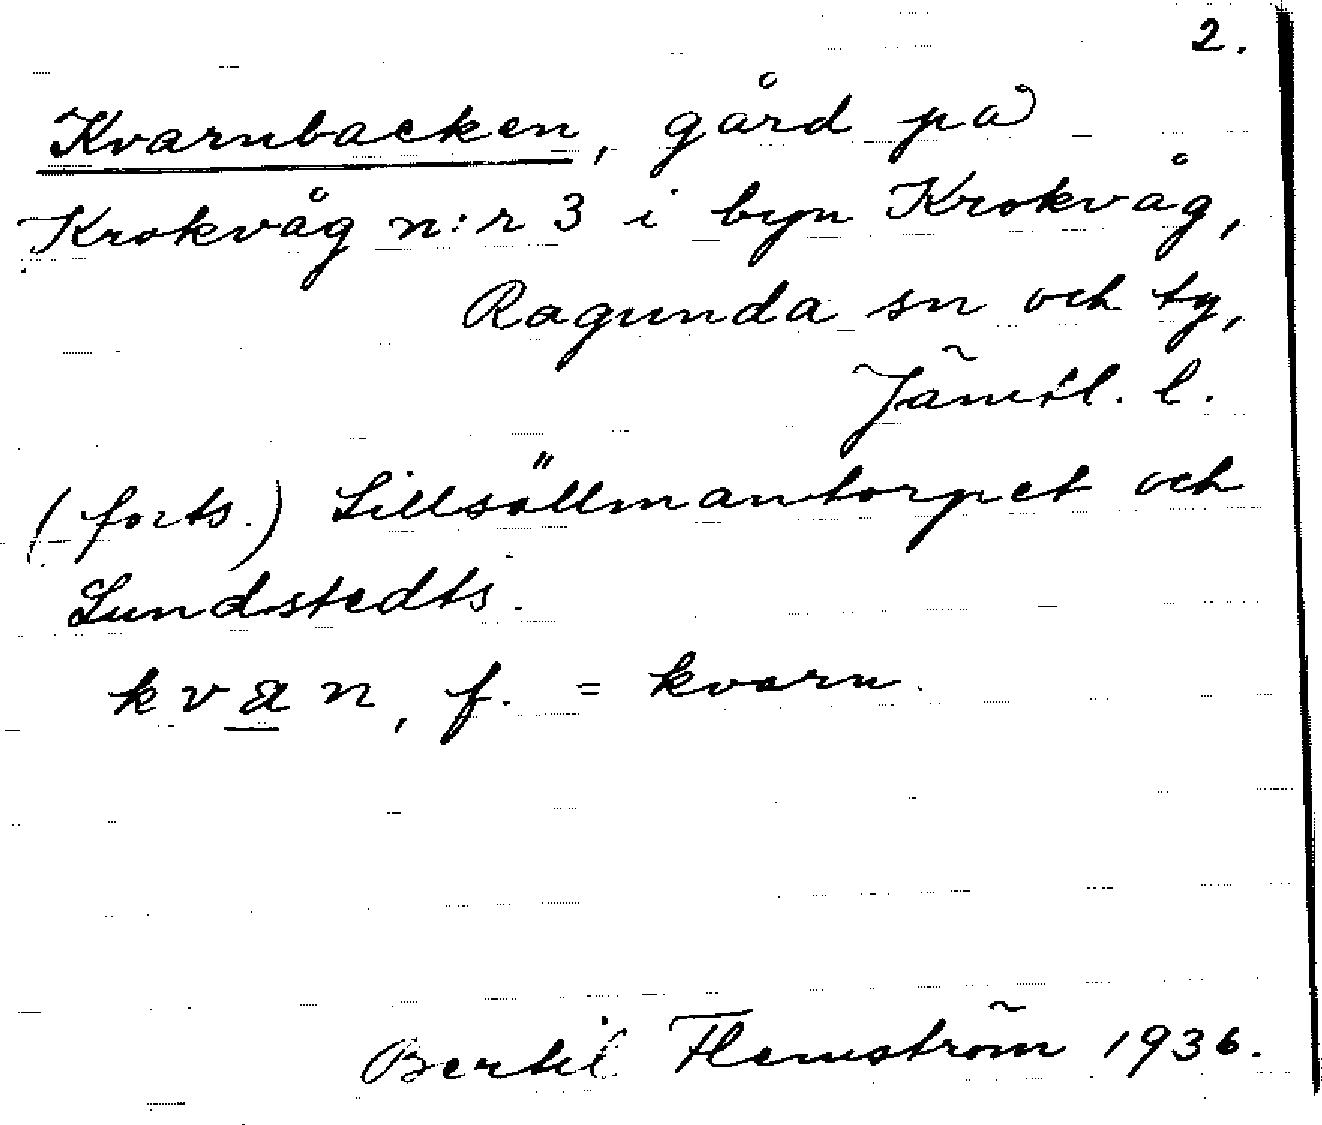 2.
Kvarnbacken, gård på
Krokvåg n:r 3 i byn Krokvåg,
Ragunda sn och tg,
Jämtl. l.
(forts.) Lillsöllmantorpet och
Lundstedts.
kvan, f. = kvarn.
Bertil Flemström 1936.